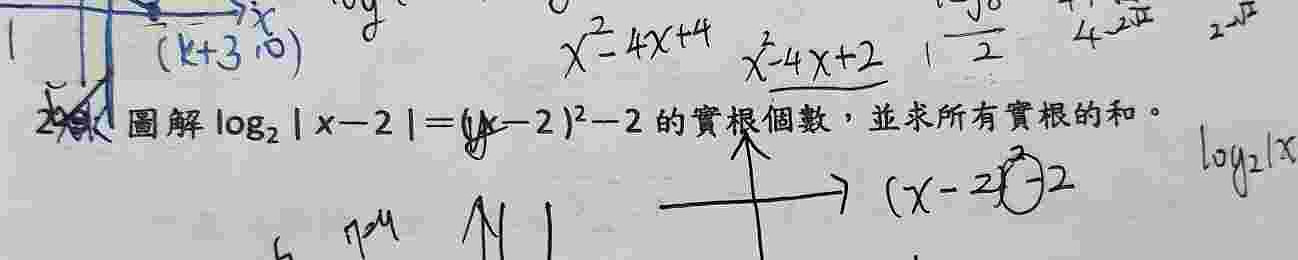 x
(k+3,0)
x²-4x+4
x²-4x+2
2
4-2√2
2-√2
圖解 log₂ | x－2 |＝(x－2)²－2 的實根個數，並求所有實根的和。
(x-2)²-2
log₂|x